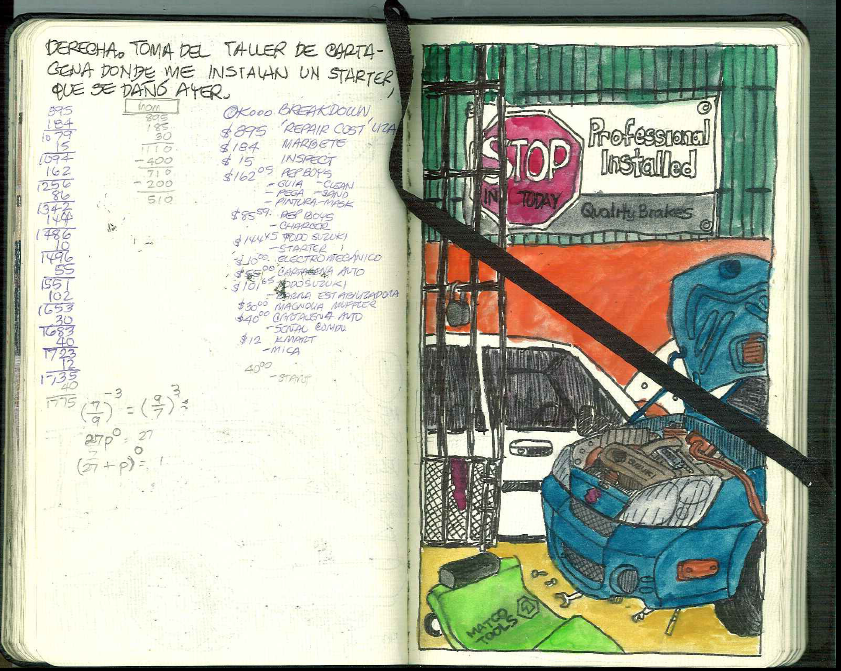 DERECHA. TOMA DEL TALLER DE CARTA-
GENA DONDE ME INSTALAN UN STARTER,
QUE SE DAÑÓ AYER.
595
184
1079
15
1094
162
1256
86
1342
144
1486
10
1496
55
1551
102
1653
30
1683
40
1723
12
1735
40
1775
mom
895
185
30
1110
-400
710
-200
510
BREAKDOWN
$895 REPAIR COST
$184 MARBETE
$15 INSPECT
$162.05 PEP BOYS
-GUIA -CLEAN
-PEGA -SAND
-PINTURA-MASK
$85.59 PEP BOYS
-CHARGER
$144.45 TODO SUZUKI
-STARTER 1
$10.00 ELECTROMECÁNICO
$55.00 CARTAGENA AUTO
$101.65 TODO SUZUKI
-BARRA ESTABILIZADORA
$30.00 MAGNOLIA MUFFLER
$40.00 CARTAGENA AUTO
-SEÑAL
$12 KMART
-MICA
40.00
-START
(7/9)^-3 = (9/7)^3
27p^0 = 27
(27 + p)^0 = 1
STOP
IN TODAY
Professional
Installed
Quality Brakes
©
©
SUZUKI
MATCO
TOOLS